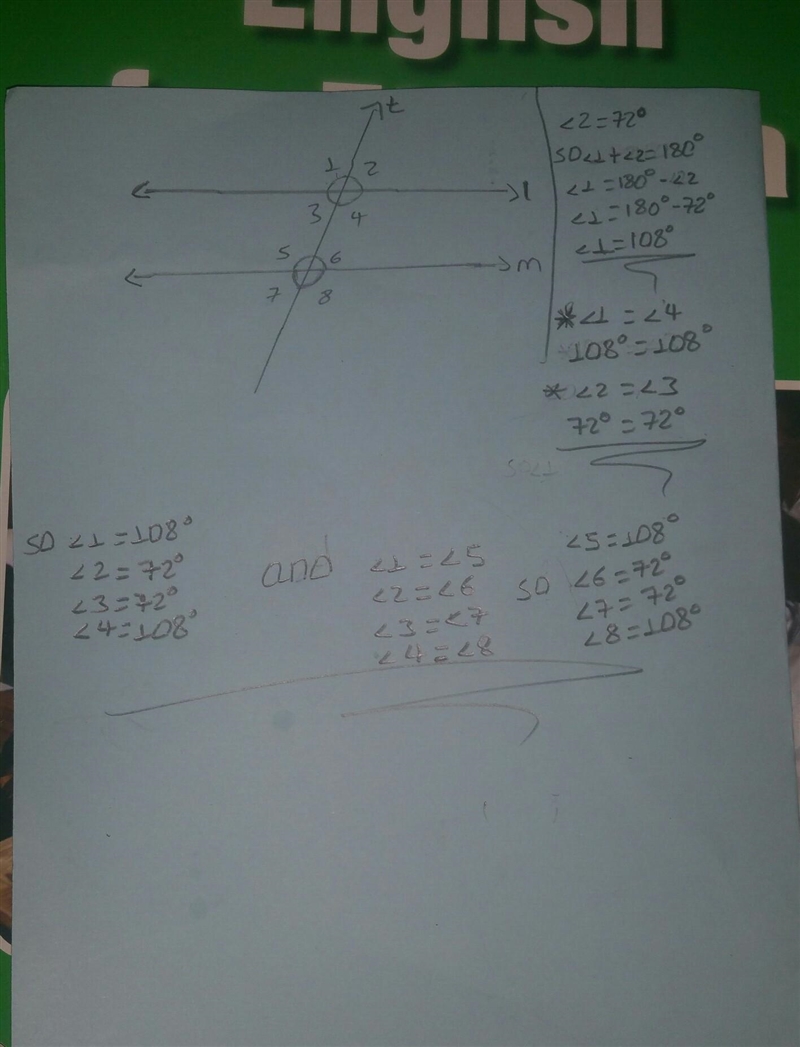 English
t
1 2
l
3 4
5 6
m
7 8
∠2=72°
SO∠1+∠2=180°
∠1=180°-∠2
∠1=180°-72°
∠1=108°
*∠1=∠4
108°=108°
*∠2=∠3
72°=72°
SO∠1
SO ∠1=108°
∠2=72°
∠3=72°
∠4=108°
and
∠1=∠5
∠2=∠6
∠3=∠7
∠4=∠8
SO
∠5=108°
∠6=72°
∠7=72°
∠8=108°